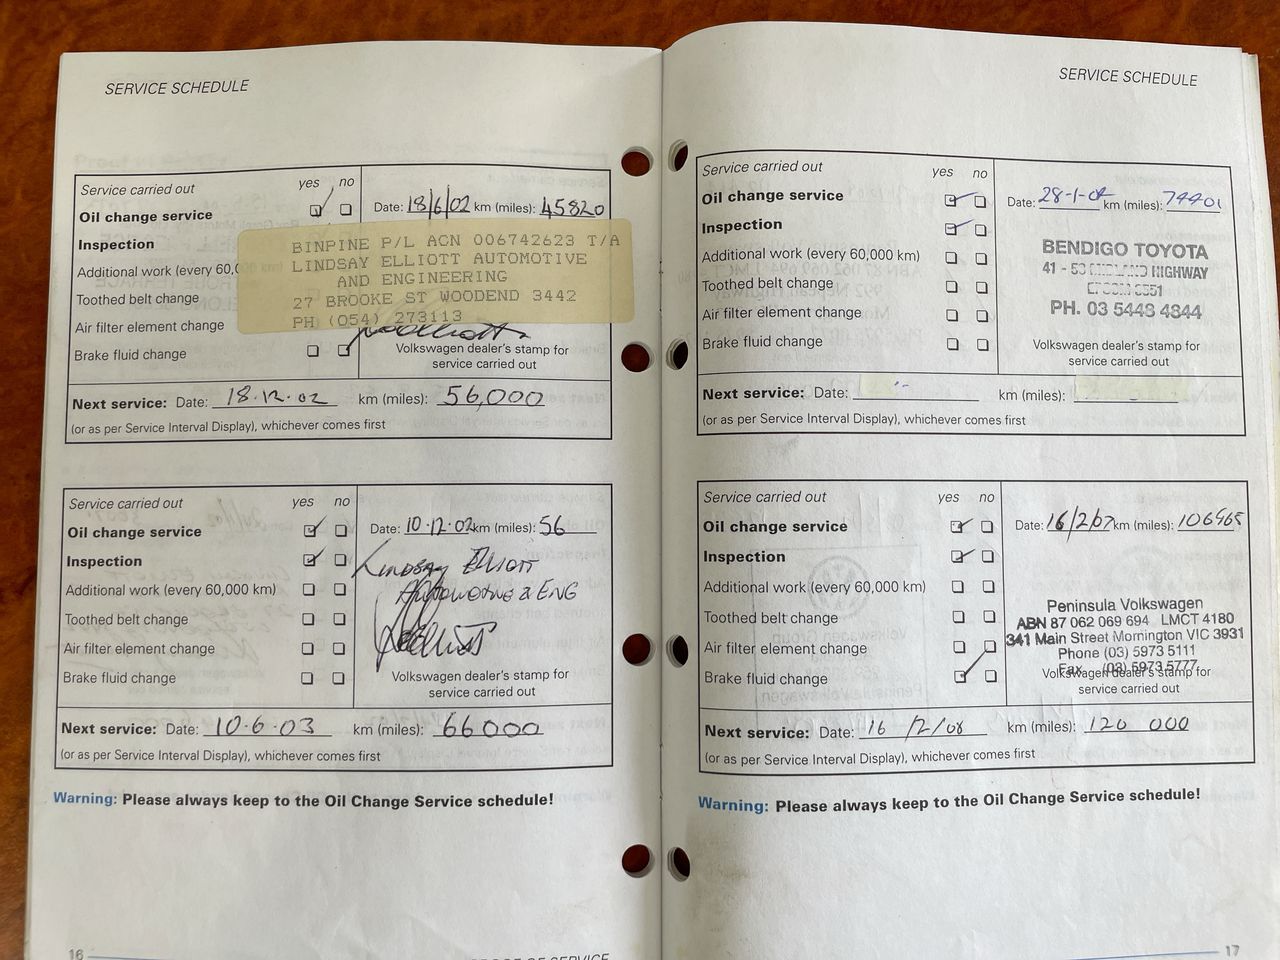 SERVICE SCHEDULE
Service carried out yes no
Oil change service
Date: 18/6/02 km (miles): 45820
Inspection
Additional work (every 60,0
Toothed belt change
Air filter element change
Brake fluid change
BINPINE P/L ACN 006742623 T/A
LINDSAY ELLIOTT AUTOMOTIVE
AND ENGINEERING
27 BROOKE ST WOODEND 3442
PH (054) 273113
Volkswagen dealer's stamp for
service carried out
Next service: Date: 18.12.02 km (miles): 56,000
(or as per Service Interval Display), whichever comes first
Service carried out yes no
Oil change service
Inspection
Additional work (every 60,000 km)
Toothed belt change
Air filter element change
Brake fluid change
Date: 10.12.02 km (miles): 56
LINDSAY ELLIOTT
AUTOMOTIVE & ENG
Volkswagen dealer's stamp for
service carried out
Next service: Date: 10.6.03 km (miles): 66000
(or as per Service Interval Display), whichever comes first
Warning: Please always keep to the Oil Change Service schedule!
16
SERVICE SCHEDULE
Service carried out yes no
Oil change service
Inspection
Additional work (every 60,000 km)
Toothed belt change
Air filter element change
Brake fluid change
Date: 28-1-04 km (miles): 74401
BENDIGO TOYOTA
41 - 53 MIDLAND HIGHWAY
PH. 03 5443 4344
Volkswagen dealer's stamp for
service carried out
Next service: Date: km (miles):
(or as per Service Interval Display), whichever comes first
Service carried out yes no
Oil change service
Inspection
Additional work (every 60,000 km)
Toothed belt change
Air filter element change
Brake fluid change
Date: 16/2/07 km (miles): 106965
Peninsula Volkswagen
ABN 87 062 069 694 LMCT 4180
341 Main Street Mornington VIC 3931
Phone (03) 5973 5111
Fax (03) 5973 5777
Volkswagen dealer's stamp for
service carried out
Next service: Date: 16/2/08 km (miles): 120 000
(or as per Service Interval Display), whichever comes first
Warning: Please always keep to the Oil Change Service schedule!
17